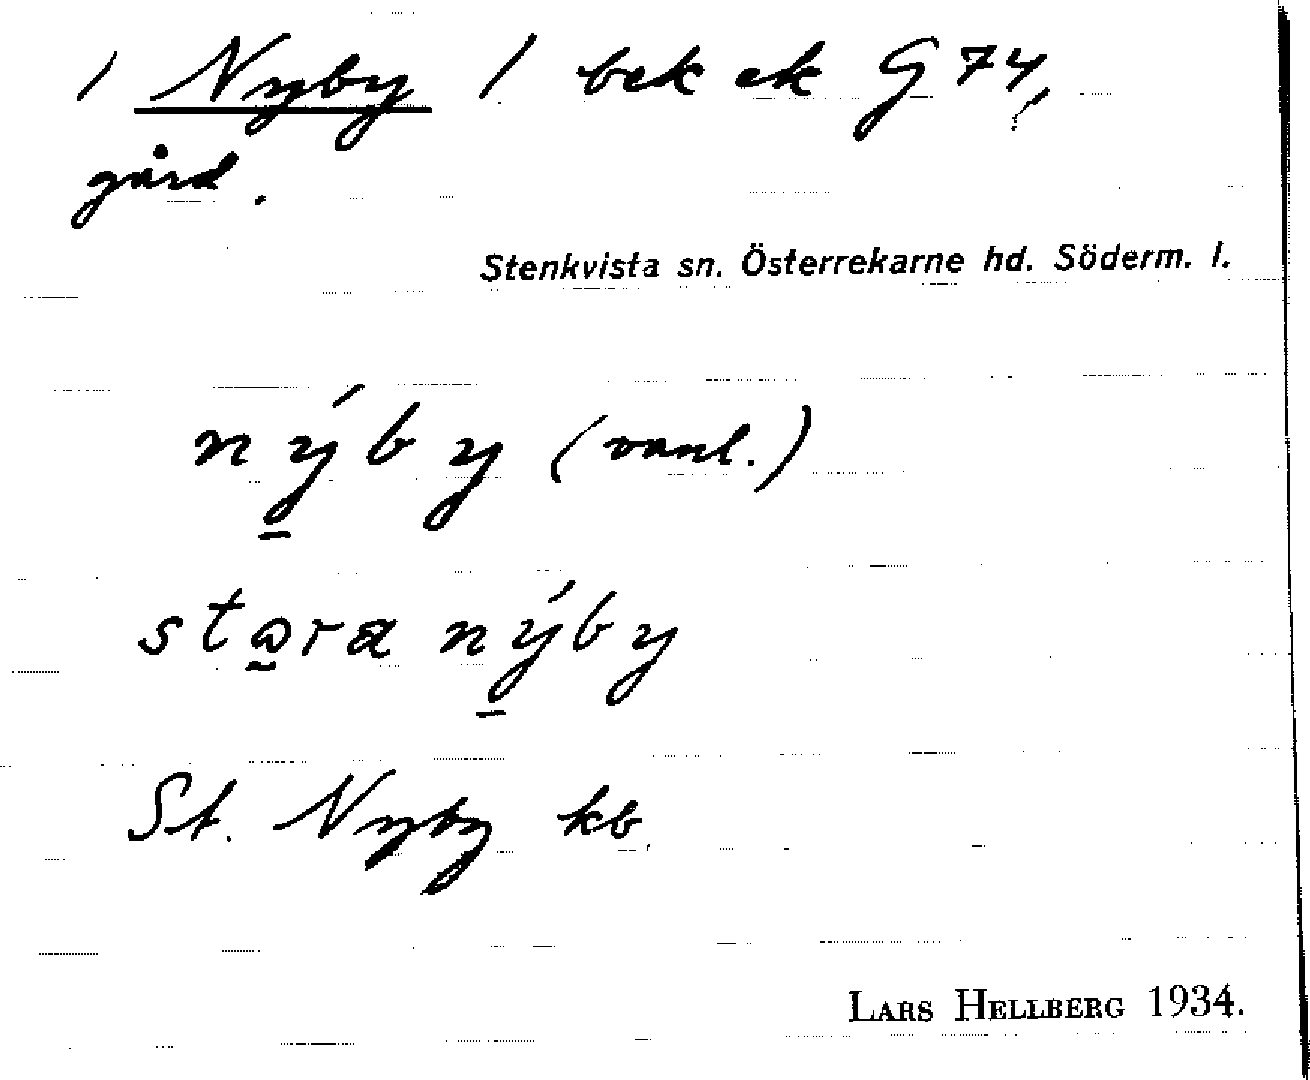 / Nyby / bek ek G 74,
gård.
Stenkvista sn. Österrekarne hd. Söderm. l.
nýby (vanl.)
stωra nýby
St. Nyby kb.
LARS HELLBERG 1934.